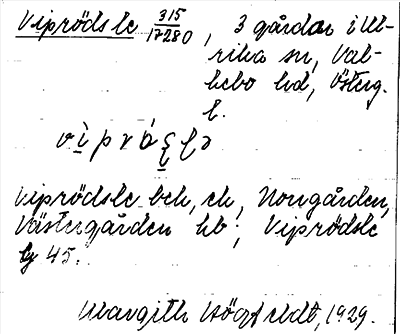 Viprödsle 315/17280, 3 gårdar i Ul-
rika sn, Val-
kebo hd, Österg.
l.
Viprödsle beb, ek, Norrgården,
Västergården hb; Viprödsle
by 45.
Margith Högfeldt, 1929.